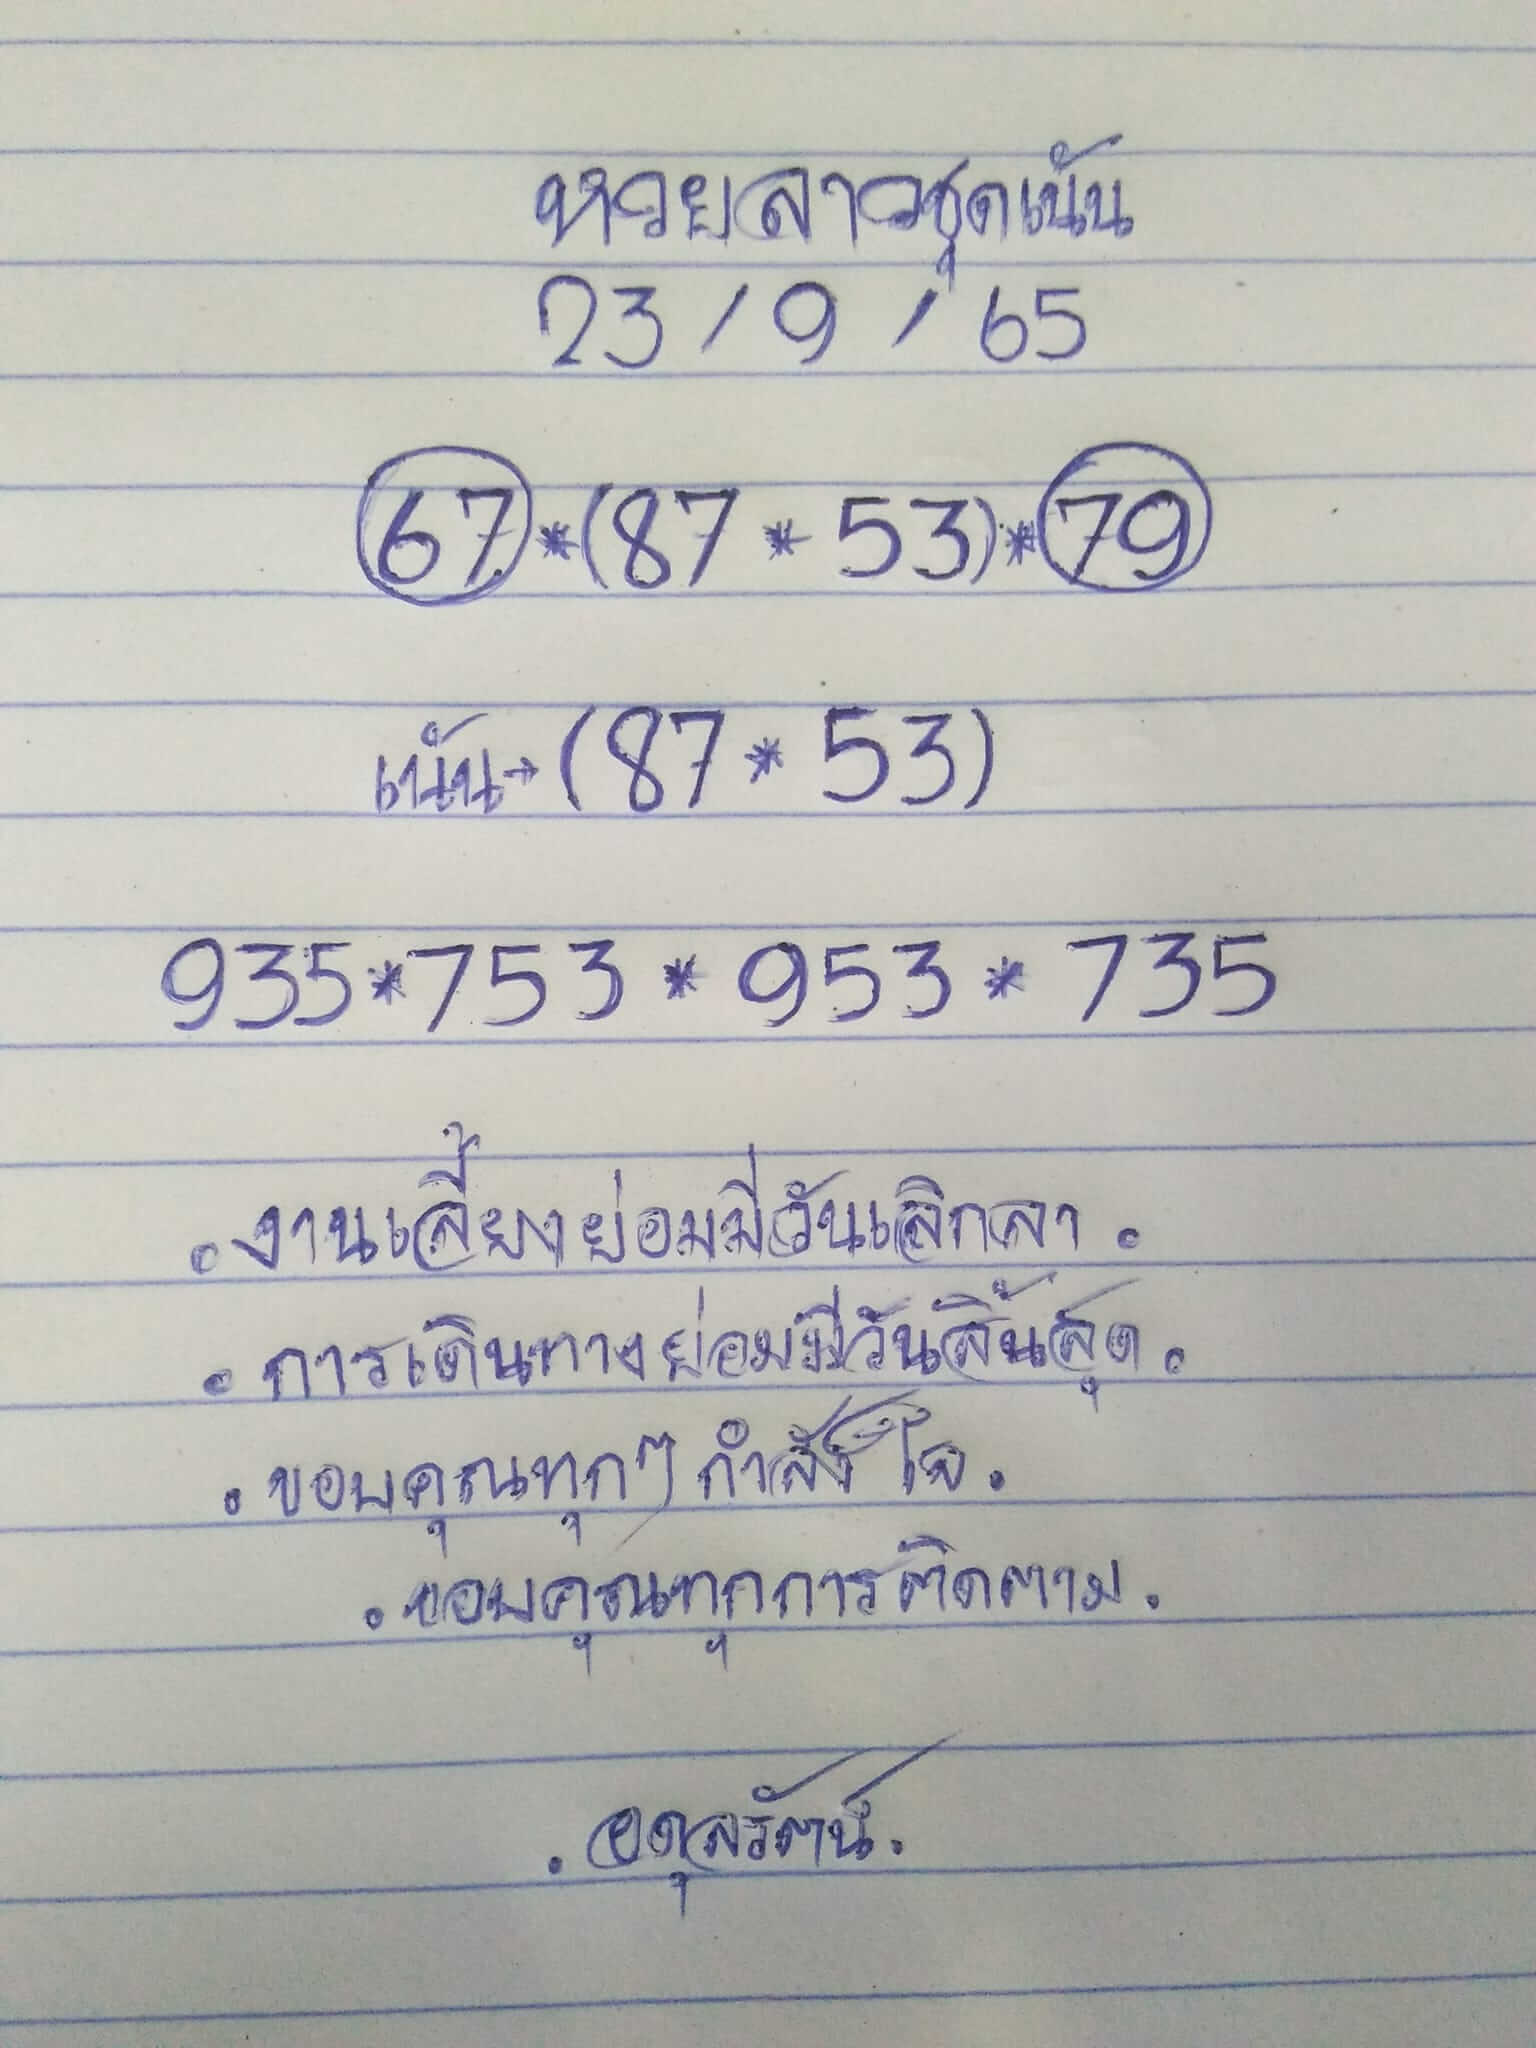 หวยลาวชุดเน้น
23 / 9 / 65
67 * (87 * 53) * 79
เน้น → (87 * 53)
935 * 753 * 953 * 735
. งานเลี้ยงย่อมมีวันเลิกลา .
. การเดินทางย่อมมีวันสิ้นสุด .
. ขอบคุณทุกๆ กำลังใจ .
. ขอบคุณทุกการติดตาม .
. อดุลรัตน์ .